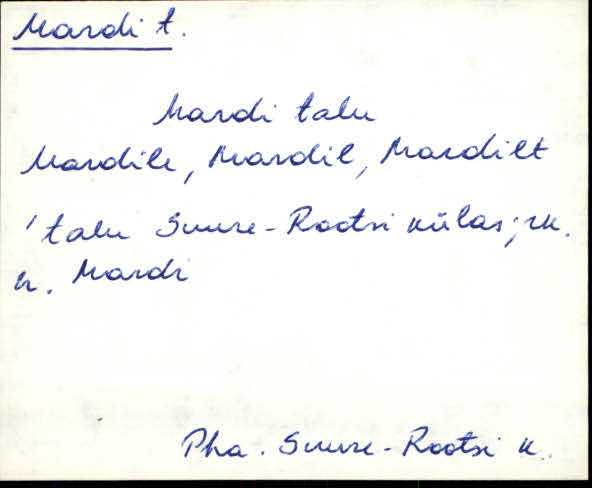 Mardi t.
Mardi talu
Mardile, Mardil, Mardilt
'talu Suure-Rootsi külas; rk.
n. Mardi
Pha. Suure-Rootsi k.